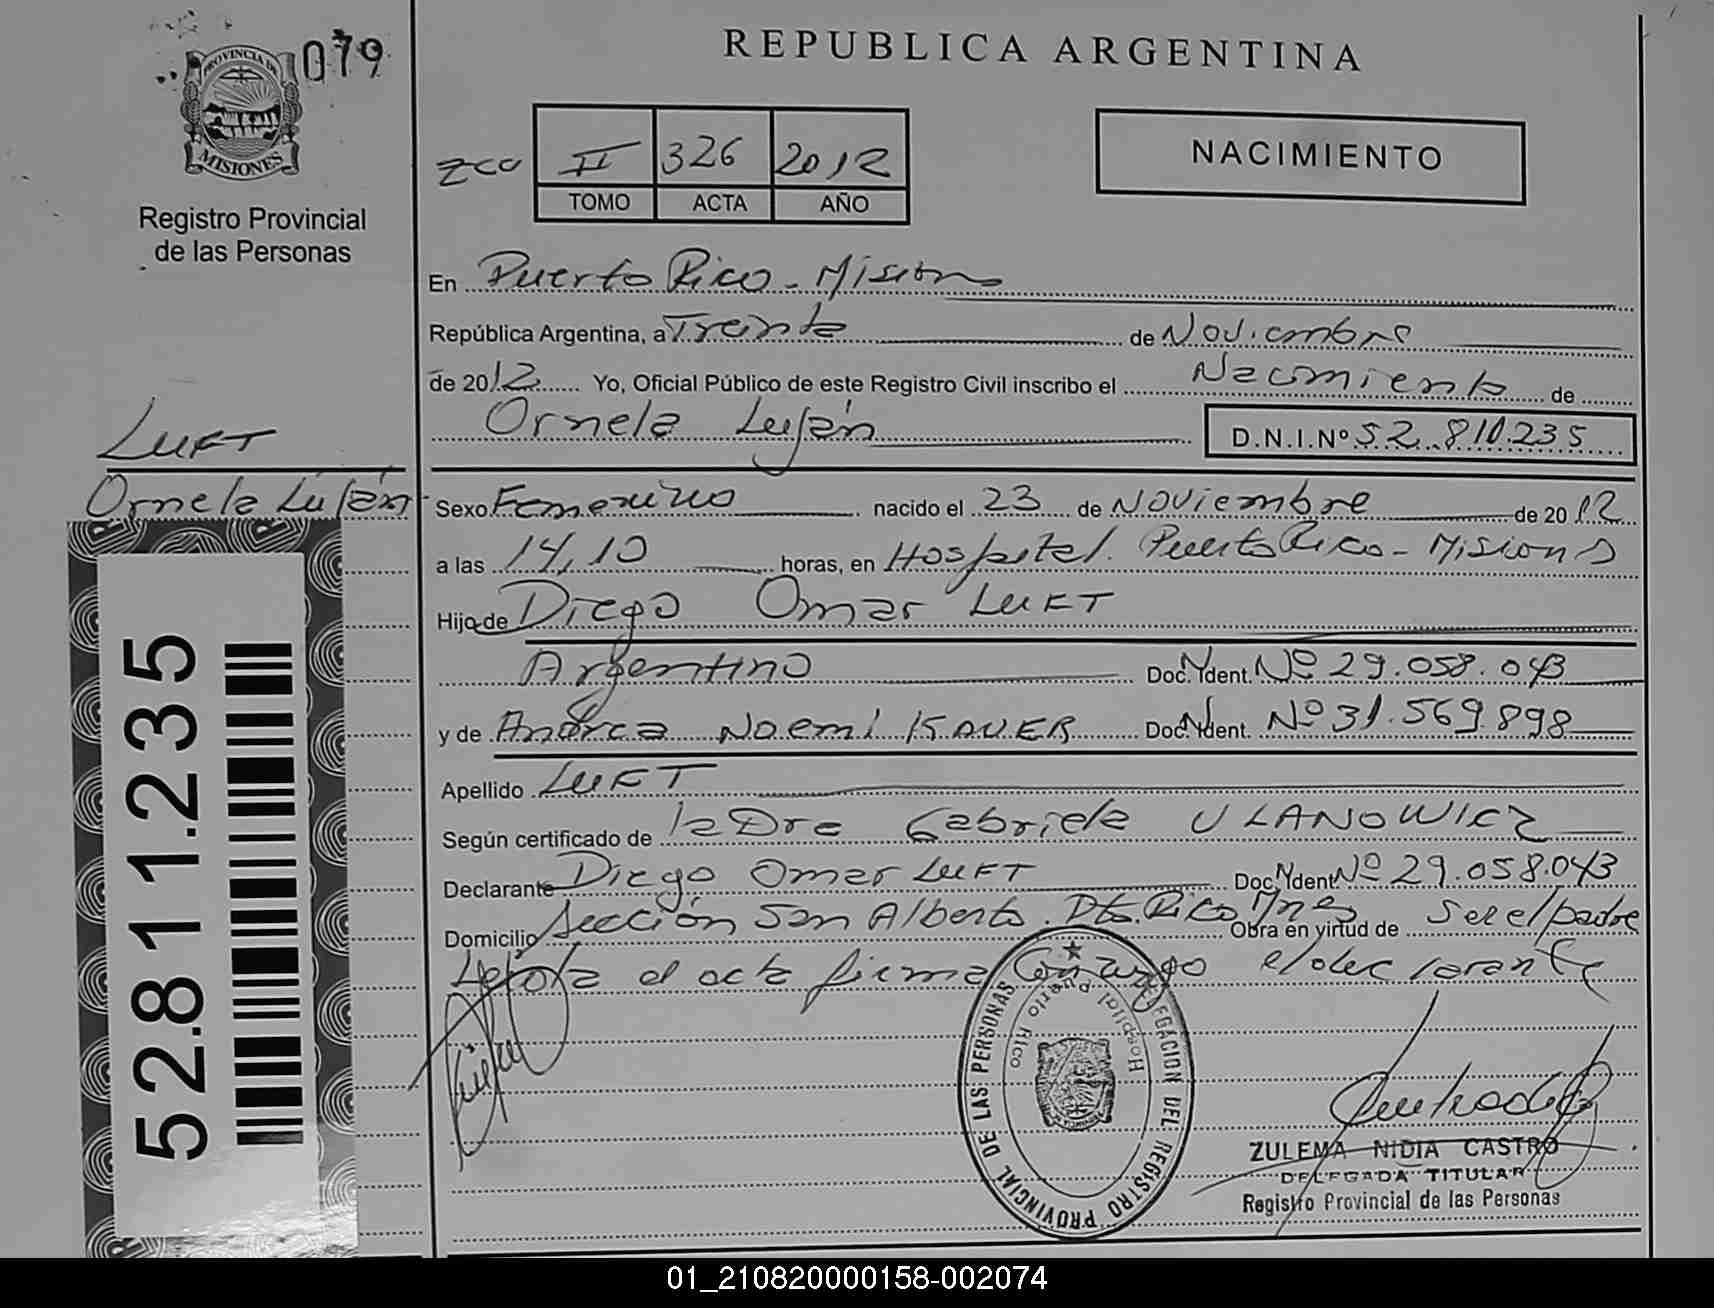 079
PROVINCIA DE
MISIONES
Registro Provincial
de las Personas
REPUBLICA ARGENTINA
II 326 2012
TOMO ACTA AÑO
NACIMIENTO
En Puerto Rico - Misiones
República Argentina, a Treinta de Noviembre
de 2012 Yo, Oficial Público de este Registro Civil inscribo el Nacimiento de
Ornela Luján D.N.I.Nº 52.810.235
LUFT
Ornela Luján
Sexo Femenino nacido el 23 de Noviembre de 2012
a las 14,10 horas, en Hospital. Puerto Rico - Misiones
Hijo de Diego Omar LUFT
Argentino Doc. Ident. Nº 29.058.043
y de Andrea Noemi KAUER Doc. Ident. Nº 31.569.898
Apellido LUFT
Según certificado de la Dra Gabriela ULANOWICZ
Declarante Diego Omar LUFT Doc. Ident. Nº 29.058.043
Domicilio Sección San Alberto. Dto. Rico Mnes Obra en virtud de Ser el padre
Leida el acta firma Conmigo el declarante
52.811.235
DELEGACION DEL REGISTRO PROVINCIAL DE LAS PERSONAS
Hospital Puerto Rico
ZULEMA NIDIA CASTRO
DELEGADA TITULAR
Registro Provincial de las Personas
01_210820000158-002074